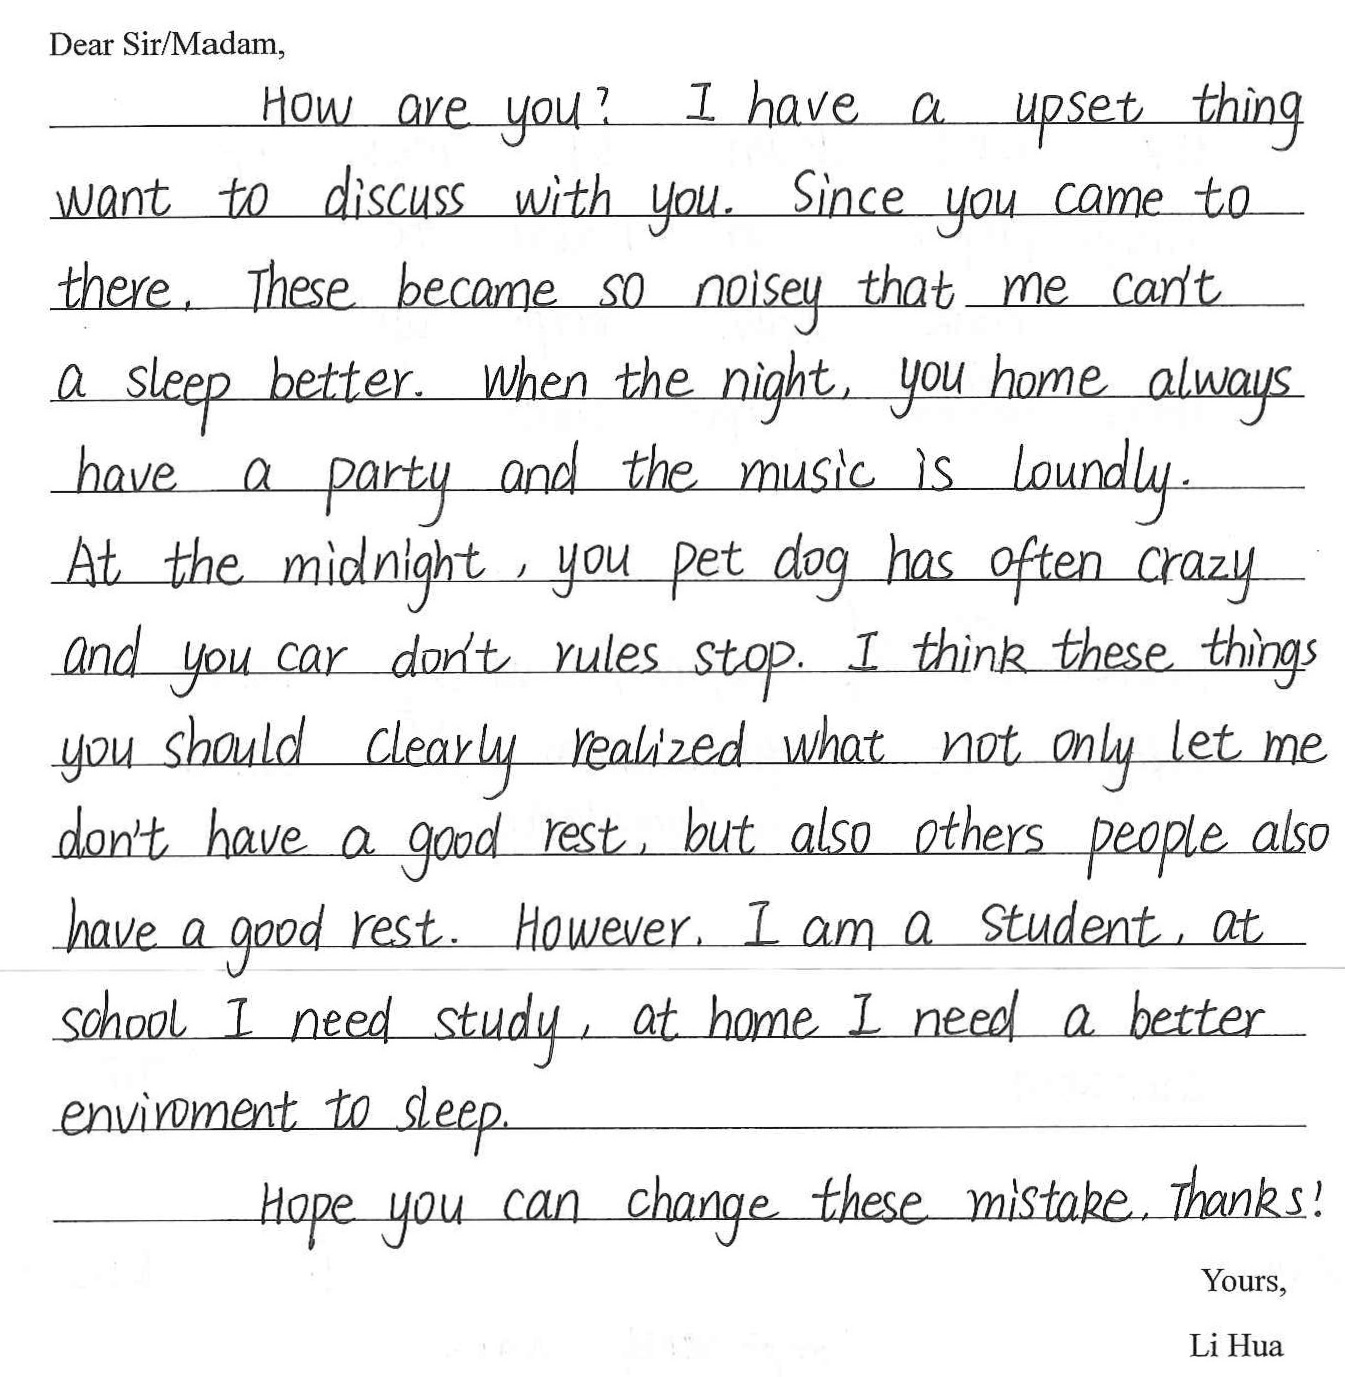 Dear Sir/Madam,
How are you? I have a upset thing
want to discuss with you. Since you came to
there, These became so noisey that me can't
a sleep better. When the night, you home always
have a party and the music is loundly.
At the midnight, you pet dog has often crazy
and you car don't rules stop. I think these things
you should clearly realized what not only let me
don't have a good rest, but also others people also
have a good rest. However, I am a student, at
school I need study, at home I need a better
enviroment to sleep.
Hope you can change these mistake. Thanks!
Yours,
Li Hua